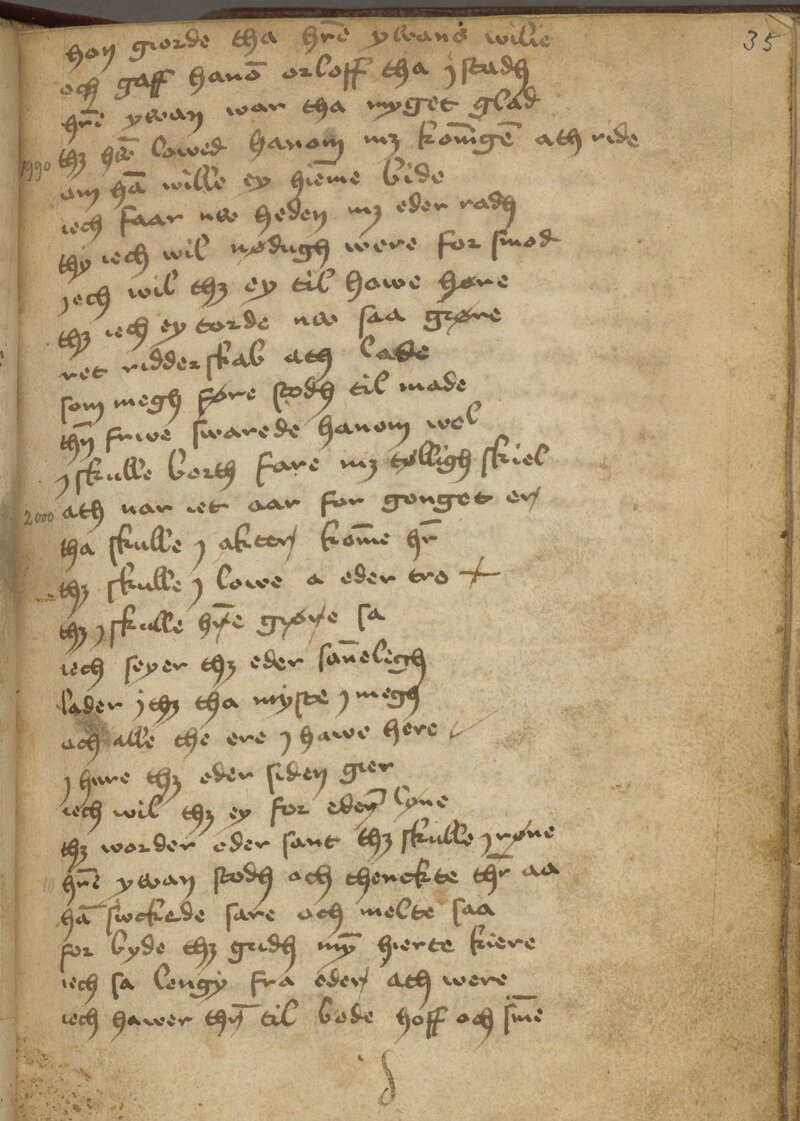 35
hon giorde tha hr̄e ywans wilie
och gaff hanō orloff tha j stadh
hr̄e ywan war tha myget glad
1990 thz hw̄ lowed hanom mz koni̅gē ath ride
om hā wille ey hiēme bide
iech faar nw heden mz eder radh
thy iech wil nødugh were for smod
jech wil thz ey til howe høre
thz iech ey torde nw saa giøre
ret ridderskab ath lade
som megh føre stodh til made
thn̄ frwe swarede hanom wel
j skulle borth fare mz tølligh skiel
2000 ath nar iet aar for genget er
tha skulle j akter kom̄e hr̄
thz skulle j lowe a eder tro
thz j skulle hr̄e giøre sa
iech seyer thz eder san̄elegh
lader j thz tha myste j megh
och alle the ere j hawe here
j hure thz eder siden gier
iech wil thz ey for eder løne
thz worder eder sant thz skulle j røne
hr̄e ywan stodh och thenckte thr̄ aa
hā swckede sare och melte saa
for byde thz gudh my̅ hierte kiere
iech sa lengy fra eder ath were
iech hawer thn̄ til bode hoff och sin̄e